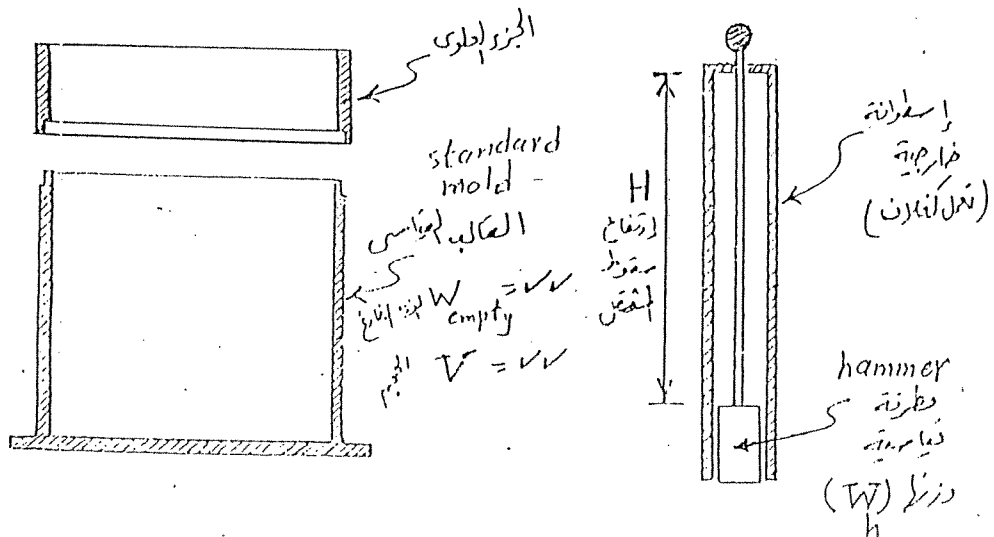 الجزء العلوى
standard
mold
القالب القياسى
الوزن الفارغ W empty = ✓✓
الحجم V = ✓✓
H
ارتفاع
سقوط
إسطوانة
خارجية
hammer
مطرقة
قياسية
وزنها (W h)